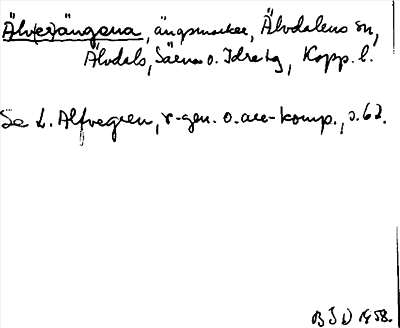 Älv(er)ängarna, ängsmarker, Älvdalens sn,
Älvdals, Särna o. Idre tg, Kopp. l.
Se L. Alfvegren, r-gen. o. are-komp., s. 62.
BJD 1958.